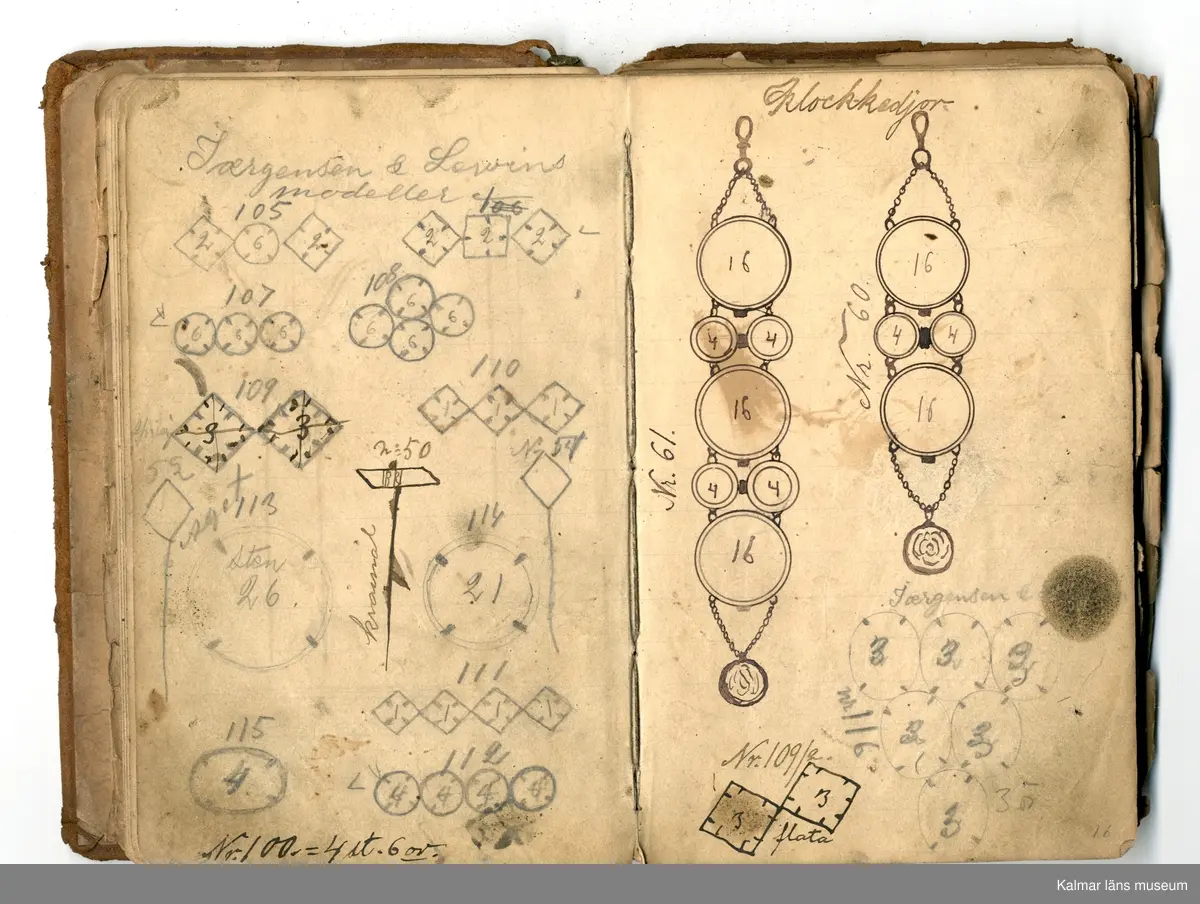 Jærgensen & Levins
modeller
105
106
2 6 2
2 2 2
107
108
6 6 6
6 6 6 6
109
110
3 3
1 1 1
n=50
No 51
52
113
114
sten
26
21
kravnål
111
1 1 1 1
115
112
4
4 4 4 4
Nr. 100 = 4 st. 6 or.
Klockkedjor.
16
4 4
16
4 4
16
Nr. 61.
16
4 4
16
Nr. 60.
Jærgensen &
3 3 3
3 3
3
n 116
35
Nr. 109/2.
3 3
flata
16
Kalmar läns museum